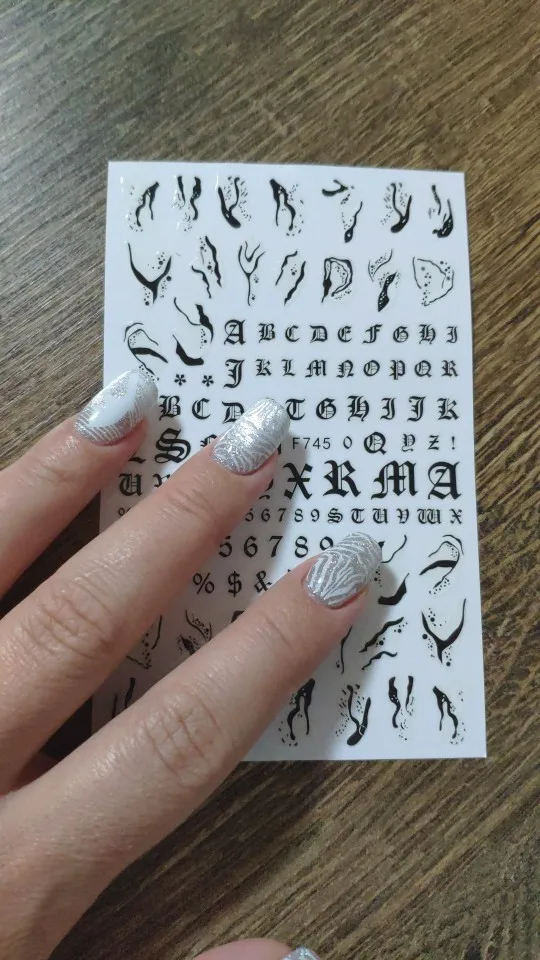 A B C D E F G H I
* * J K L M N O P Q R
B C D F G H I J K
L S F745 0 Q Y Z !
U X R M A
% 6 7 8 9 S T U V W X
5 6 7 8 9
% $ &